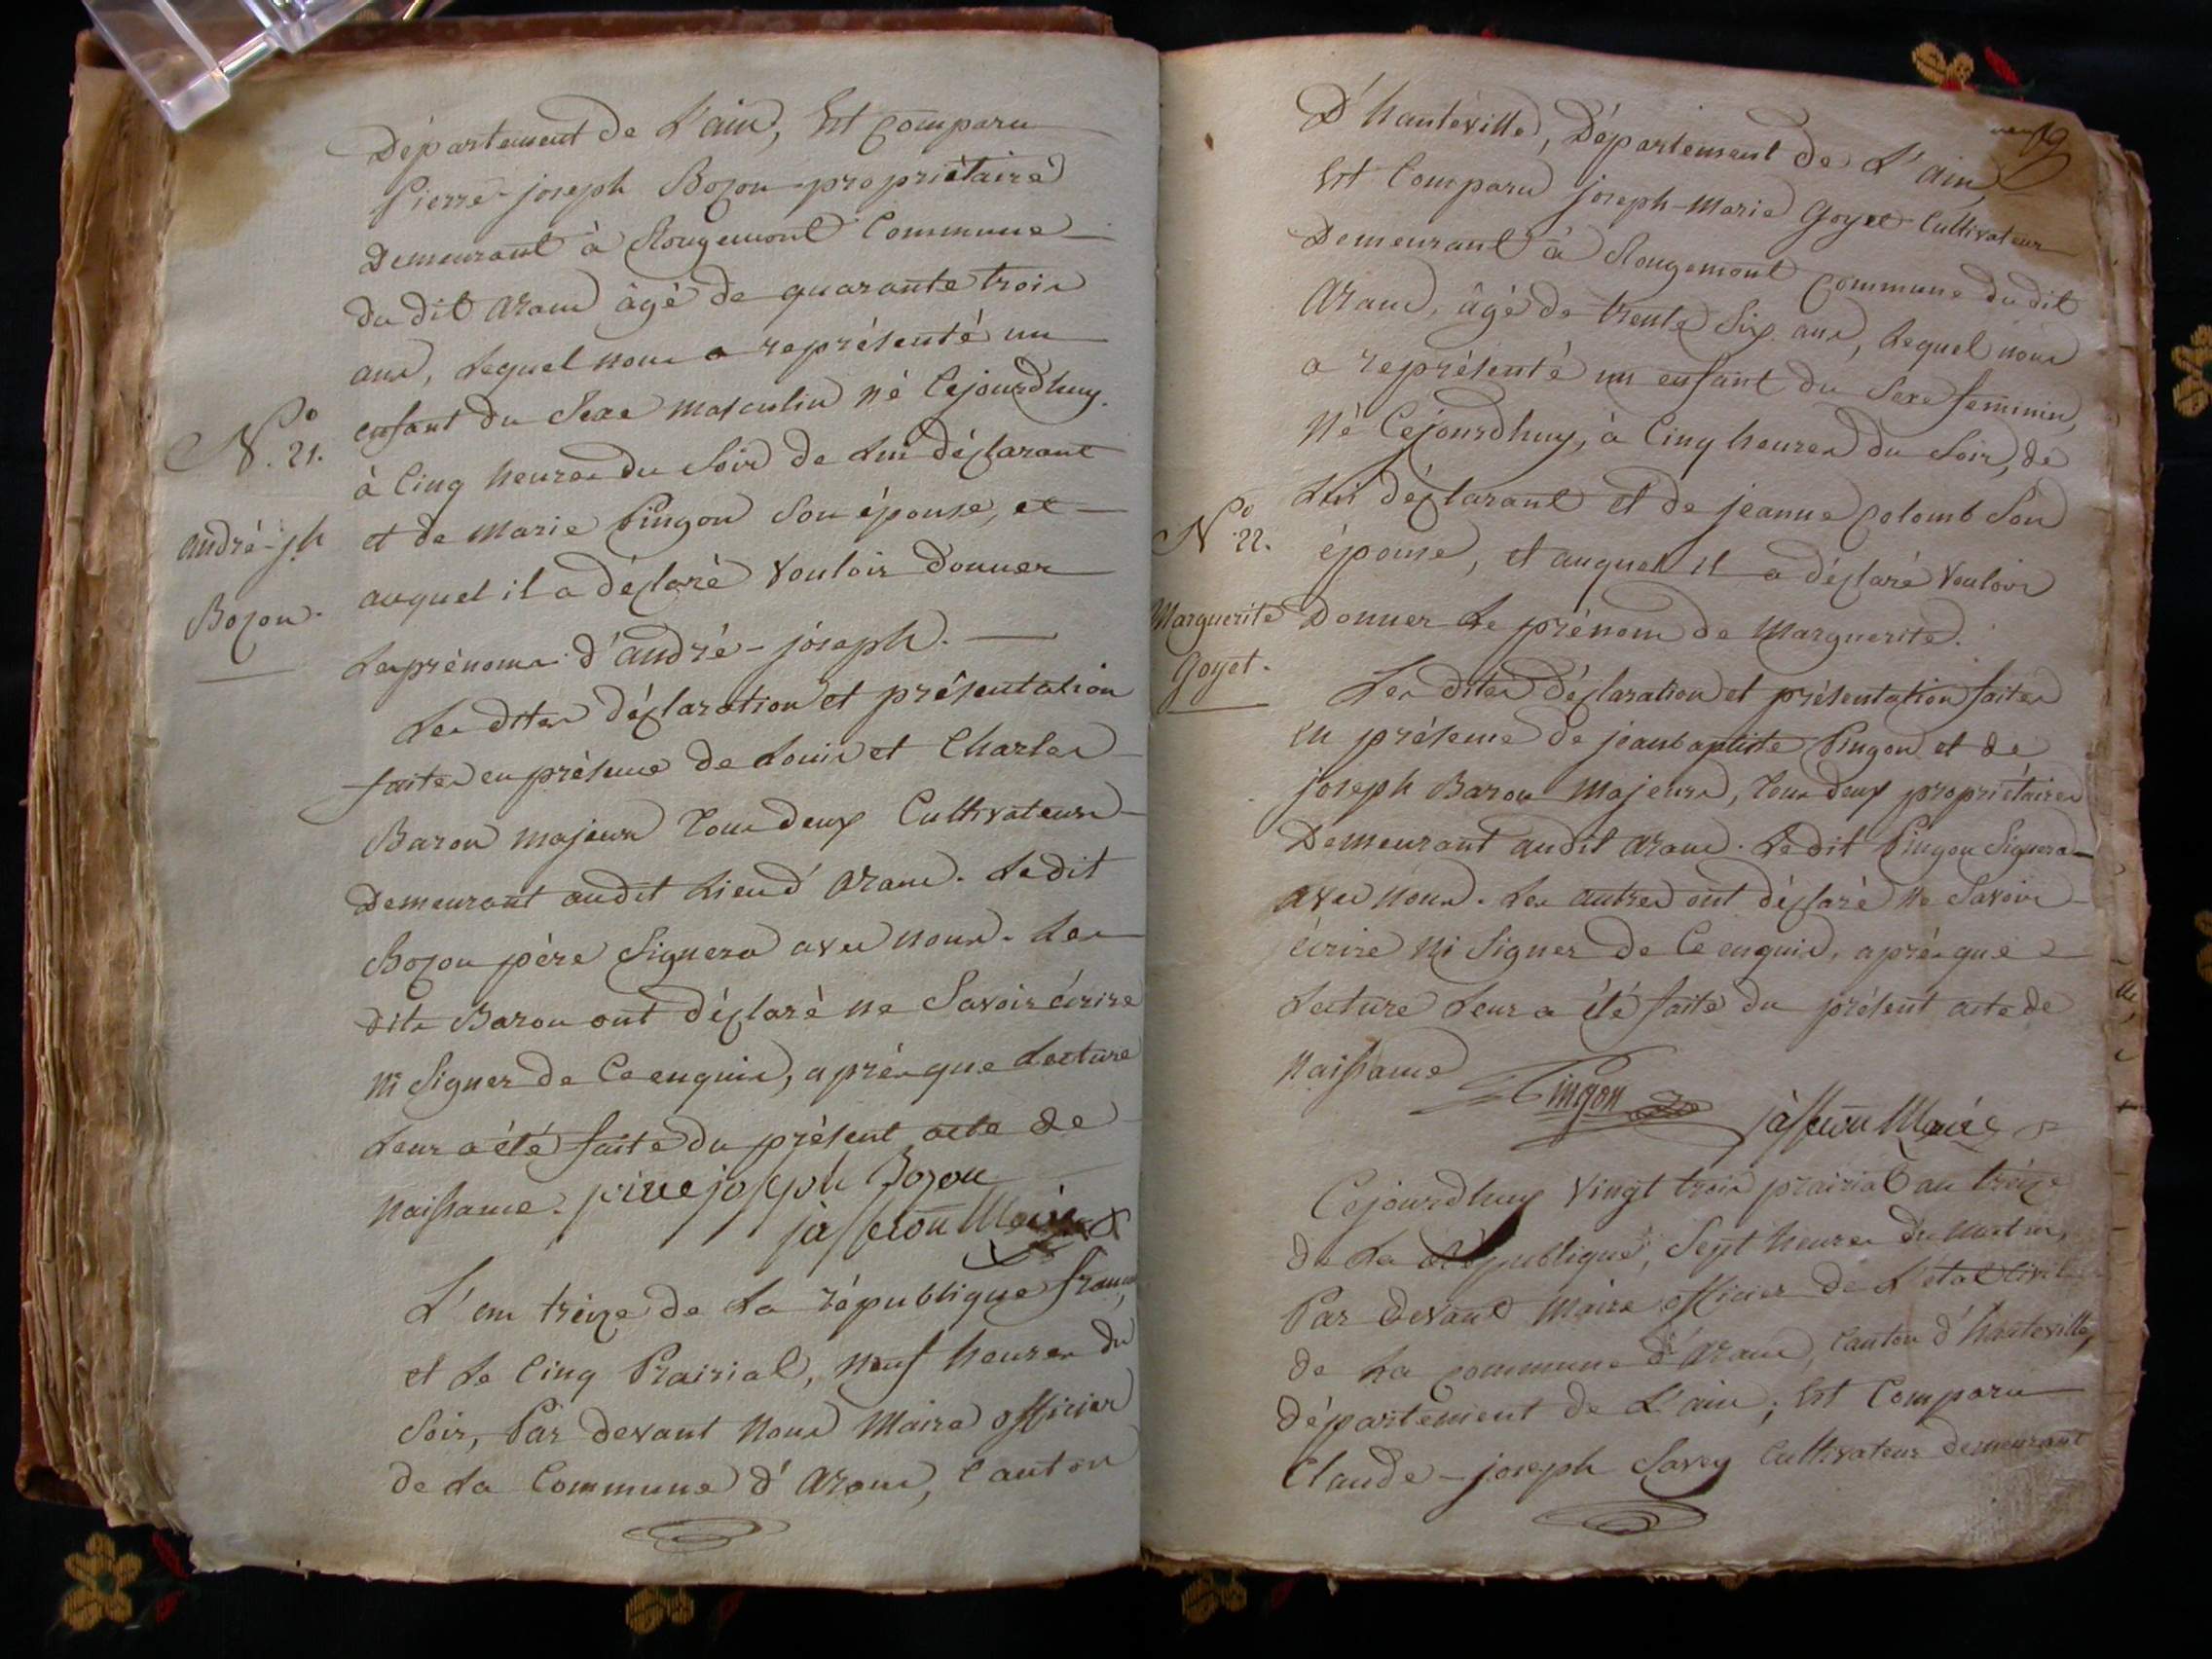 Département de L'ain, Est Comparu
Pierre-joseph Bozon propriétaire
Demeurant à Rougemont Commune
du dit aranc âgé de quarante trois
ans, Lequel nous a représenté un
enfant du Sexe masculin né Cejourdhuy.
N.° 21.
à Cinq heures du Soir de Lui déclarant
et de Marie Pingon Son épouse, et
andré-jph
auquel il a déclaré Vouloir Donner
Bozon.
Les prénoms d'andré-joseph.
Les dites déclaration et présentation
faites en présence de Louis et Charles
Baron majeurs Tous deux Cultivateurs
Demeurant audit Lieu d'aranc. Ledit
Bozon père Signera avec nous. Les
dits Baron ont déclaré ne Savoir écrire
ni Signer de Ce enquis, après que Lecture
Leur a été faite du présent acte de
naissance. pierre joseph Bozon
jasseron Maire
L'an treize de La république franc,
et Le Cinq Prairial, neuf heures du
Soir, Par devant Nous Maire officier
de La Commune d'aranc, Canton
neuf 9
D'hauteville, Département de L'ain,
Est Comparu joseph-Marie Goyet Cultivateur
Demeurant à Rougemont Commune du dit
aranc, âgé de trente Six ans, Lequel nous
a représenté un enfant du Sexe feminin,
Né Cejourdhuy, à Cinq heures du Soir, de
Lui déclarant et de jeanne Colomb Son
N.° 22.
épouse, et auquel il a déclaré Vouloir
Marguerite
Donner Le prénom de Marguerite.
Goyet.
Les dites déclaration et présentation faites
en présence de jeanbaptiste Pingon et de
joseph Baron Majeurs, Tous deux propriétaires
Demeurant audit aranc. Ledit Pingon Signera
avec nous. Les autres ont déclaré ne Savoir
écrire ni Signer de Ce enquis, après que
Lecture Leur a été faite du présent acte de
naissance
Pingon
jasseron Maire
Cejourdhuy Vingt trois prairial an treize
de La République, Sept heures du matin,
Par devant Maire officier de L'état Civil
de La Commune d'aranc, Canton d'hauteville,
Département de L'ain; Est Comparu
Claude-joseph Savey Cultivateur demeurant